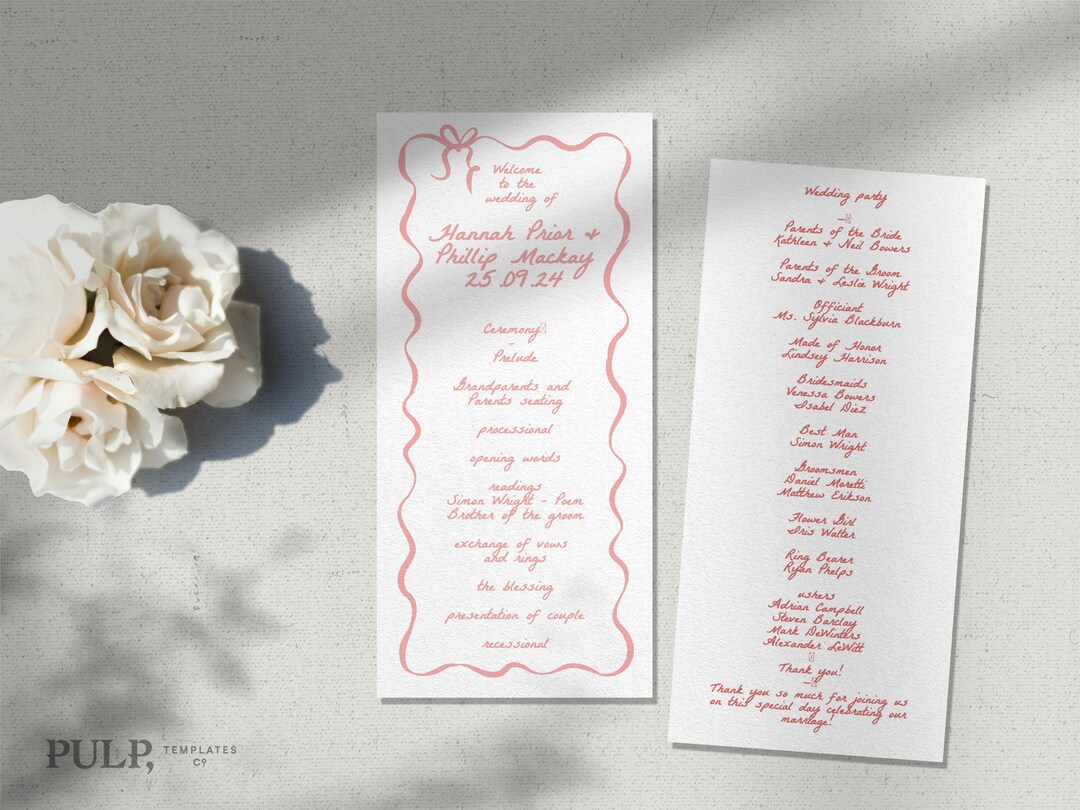 Welcome
to the
wedding of
Hannah Prior +
Phillip Mackay
25.09.24
Ceremony
-
Prelude
Grandparents and
Parents seating
processional
opening words
readings
Simon Wright - Poem
Brother of the groom
exchange of vows
and rings
the blessing
presentation of couple
recessional
Wedding party
-
Parents of the Bride
Kathleen + Neil Bowers
Parents of the Groom
Sandra + Leslie Wright
Officiant
Ms. Sylvia Blackburn
Made of Honor
Lindsey Harrison
Bridesmaids
Venessa Bowers
Isabel Diez
Best Man
Simon Wright
Groomsmen
Daniel Moretti
Matthew Erikson
Flower Girl
Iris Walter
Ring Bearer
Ryan Phelps
ushers
Adrian Campbell
Steven Barclay
Mark DeWinters
Alexander LeWitt
Thank you!
-
Thank you so much for joining us
on this special day celebrating our
marriage!
PULP, TEMPLATES
CO